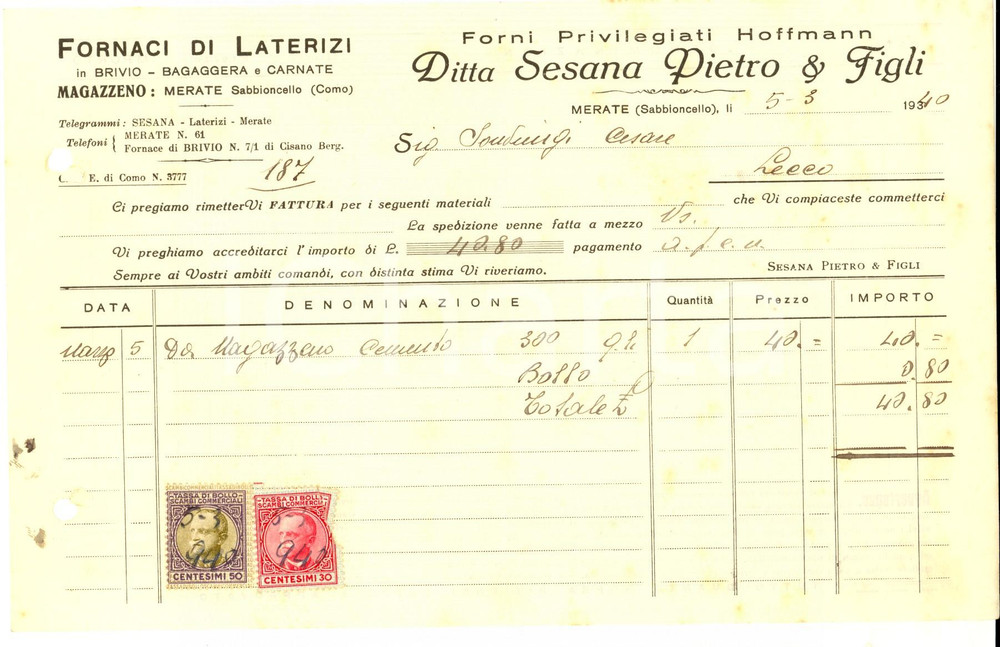 FORNACI DI LATERIZI
in BRIVIO - BAGAGGERA e CARNATE
MAGAZZENO: MERATE Sabbioncello (Como)
Telegrammi: SESANA - Laterizi - Merate
Telefoni { MERATE N. 61
Fornace di BRIVIO N. 7/1 di Cisano Berg.
C. E. di Como N. 3777
187
Forni Privilegiati Hoffmann
Ditta Sesana Pietro & Figli
MERATE (Sabbioncello), li 5-3 193 40
Sig. Cesare
Lecco
Ci pregiamo rimetterVi FATTURA per i seguenti materiali che Vi compiaceste commetterci
La spedizione venne fatta a mezzo Vs.
Vi preghiamo accreditarci l'importo di L. 40.80 pagamento
Sempre ai Vostri ambiti comandi, con distinta stima Vi riveriamo.
SESANA PIETRO & FIGLI
DATA DENOMINAZIONE Quantità Prezzo IMPORTO
Marzo 5 Da Magazzeno Cemento 300 q.li 1 40.= 40.=
Bollo 0.80
Totale £ 40.80
TASSA DI BOLLO
SCAMBI COMMERCIALI
5-3
940
CENTESIMI 50
TASSA DI BOLLO
SCAMBI COMMERCIALI
5-3
940
CENTESIMI 30